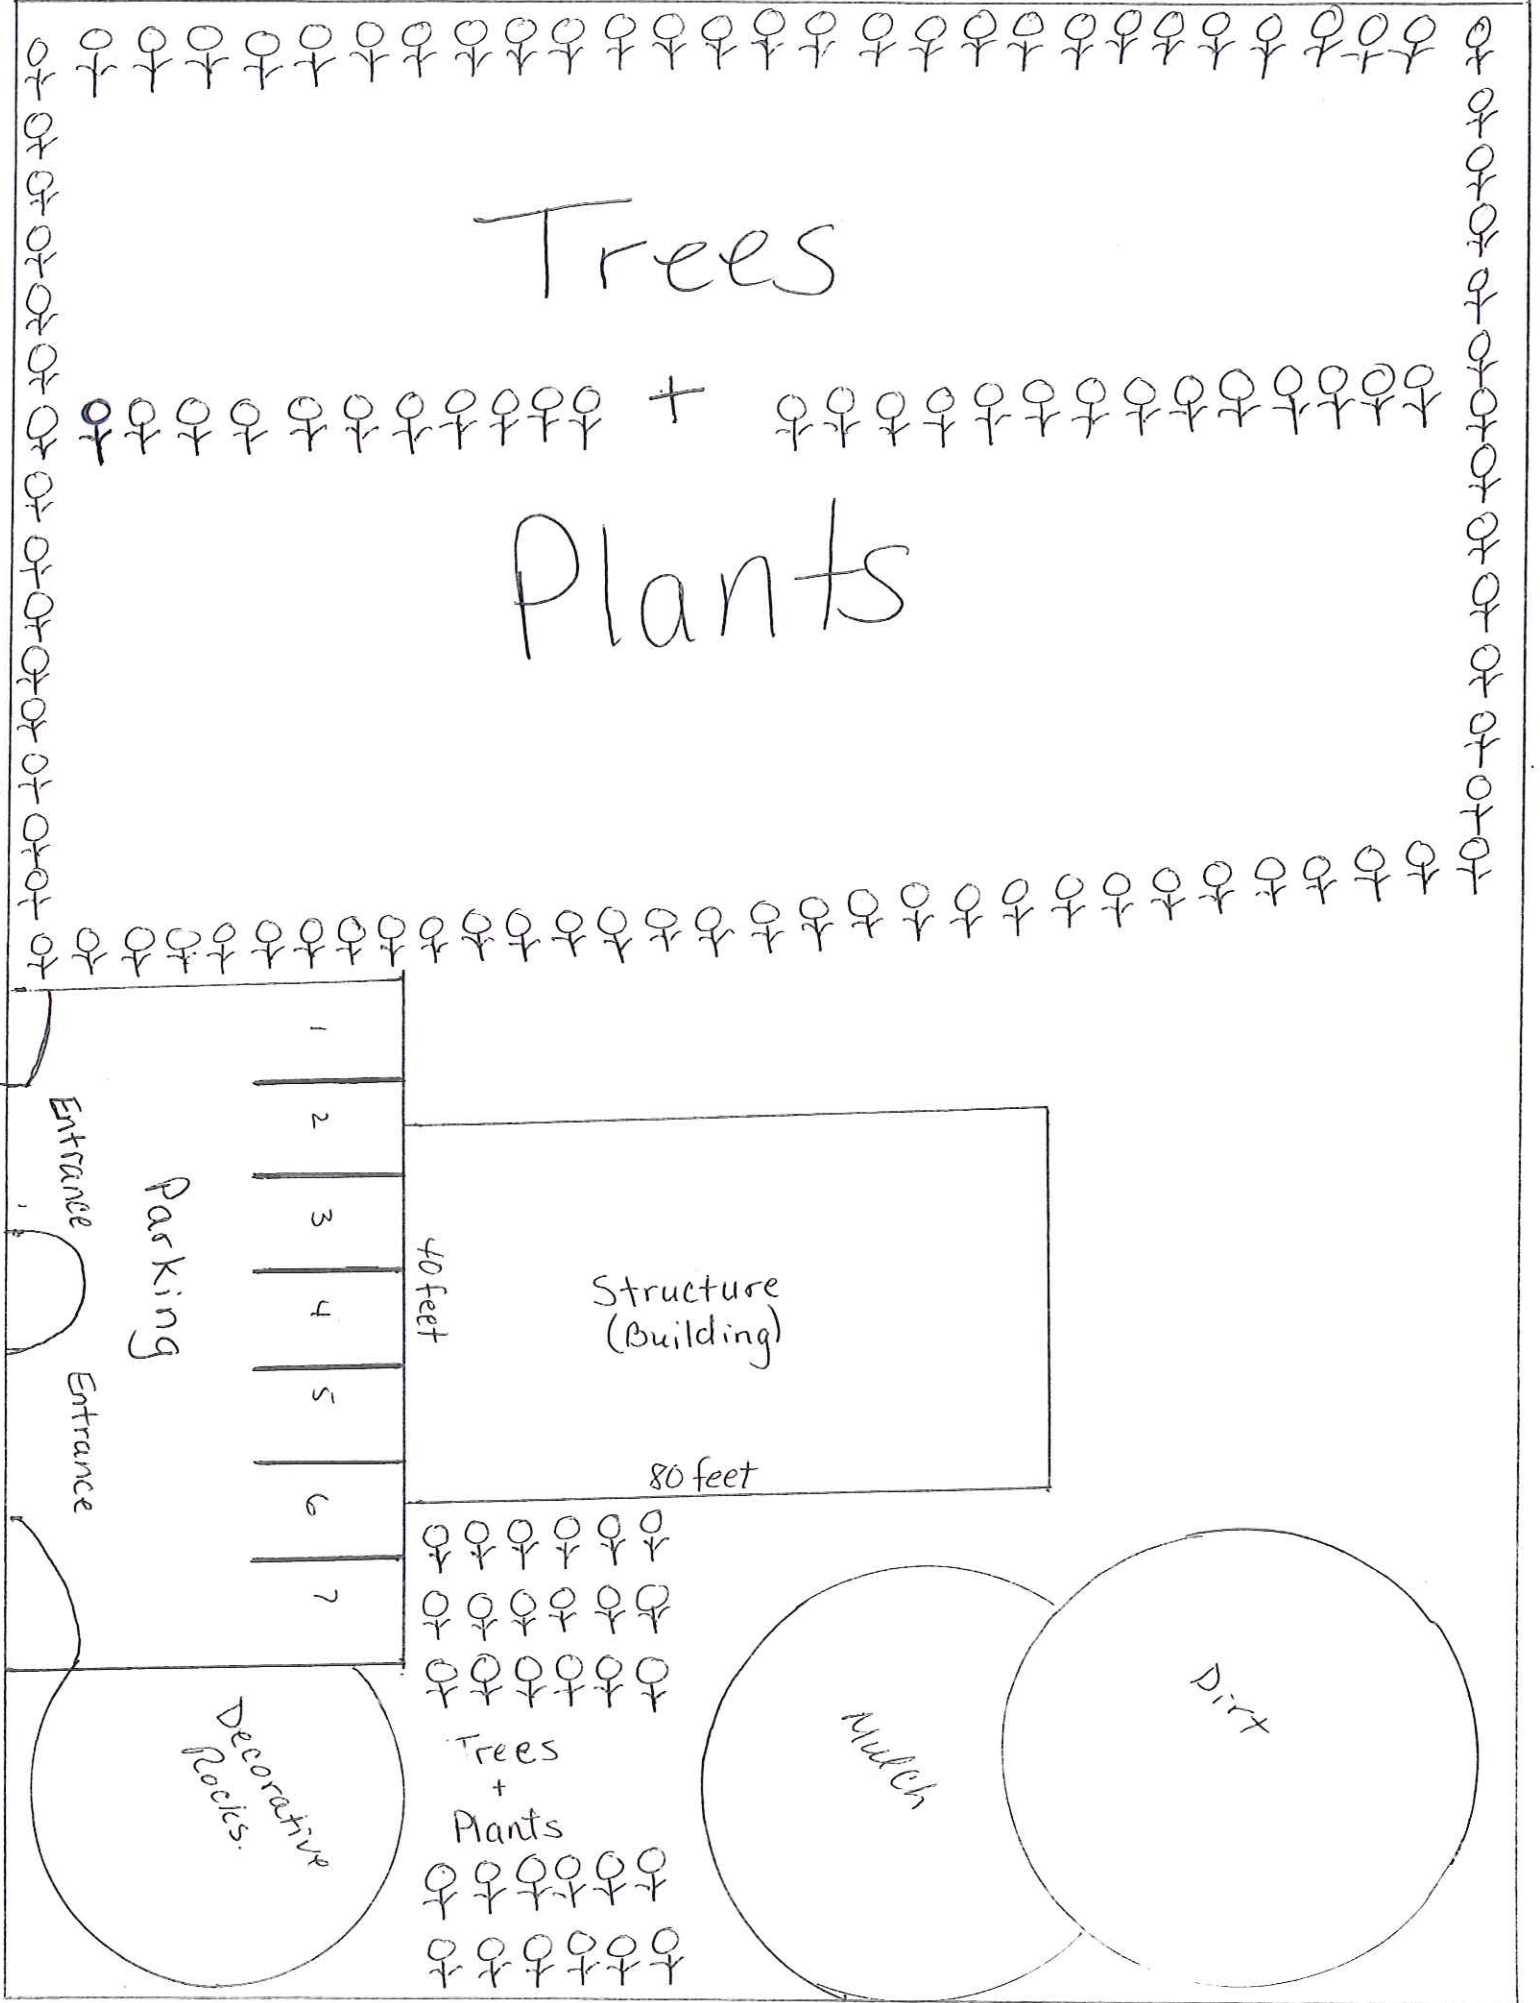 Trees
+
Plants
1
2
3
4
5
6
7
Entrance
Parking
Entrance
40 feet
Structure
(Building)
80 feet
Decorative
Rocks.
Trees
+
Plants
Mulch
Dirt